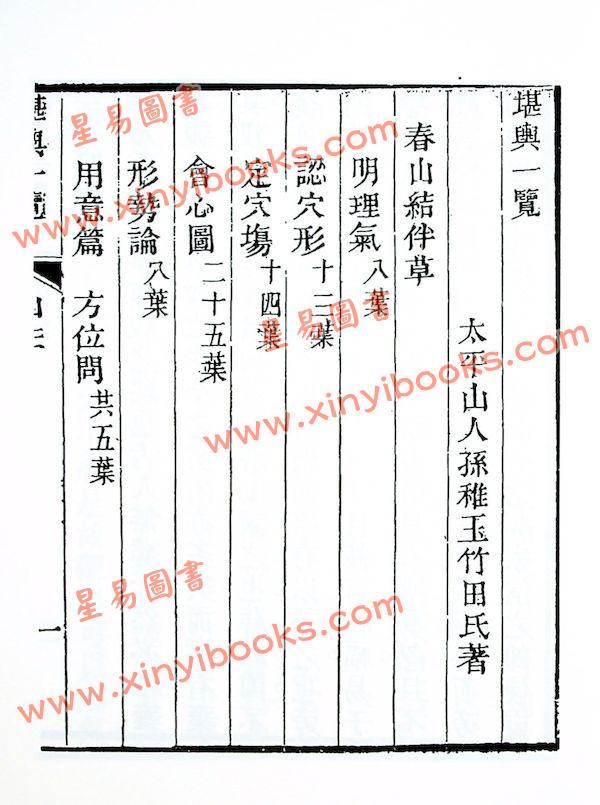 堪輿一覽
太平山人孫稚玉竹田氏著
春山結伴草
明理氣 八葉
認穴形
定穴塲 十四葉
會心圖 二十五葉
形勢論 八葉
用意篇 方位問 共五葉
堪輿一覽
一
星易圖書
www.xinyibooks.com
星易圖書
www.xinyibooks.com
星易圖書
www.xinyibooks.com